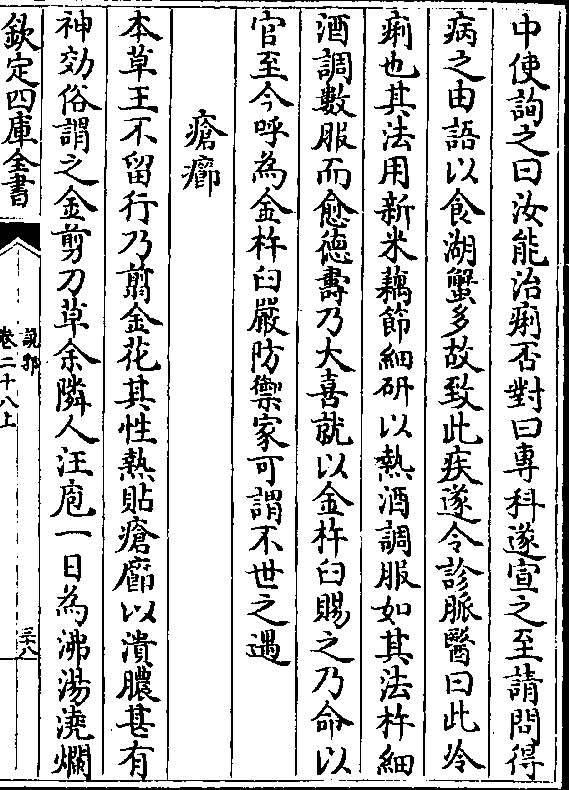 中使詢之曰汝能治痢否對曰專科遂宣之至請問得
病之由語以食湖蟹多故致此疾遂令診脈醫曰此冷
痢也其法用新米藕節細研以熱酒調服如其法杵細
酒調數服而愈德壽乃大喜就以金杵臼賜之乃命以
官至今呼為金杵臼嚴防禦家可謂不世之遇
瘡癤
本草王不留行乃翦金花其性熱貼瘡癤以潰膿甚有
神効俗謂之金剪刀草余隣人汪庖一日為沸湯澆爛
欽定四庫全書
說郛
卷二十八上
三十八